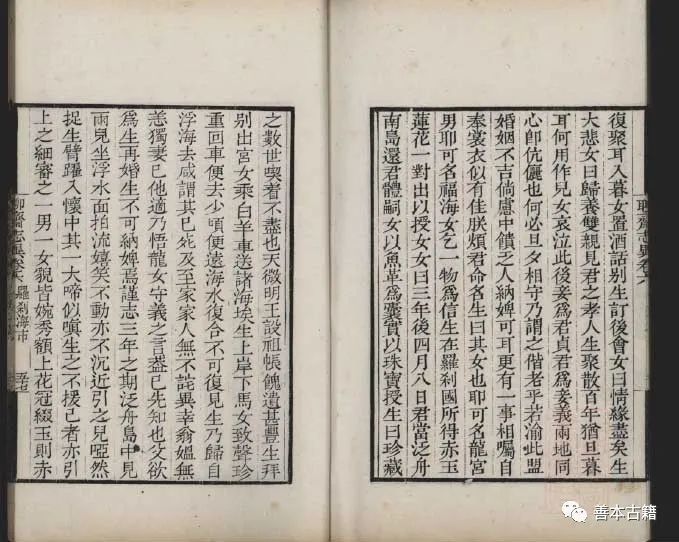 聊齋志異卷六
復聚耳入暮女置酒話别生訂後會女曰情緣盡矣生
大悲女曰歸養雙親見君之孝人生聚散百年猶旦暮
耳何用作兒女哀泣此後妾爲君貞君爲妾義兩地同
心卽伉儷也何必旦夕相守乃謂之偕老乎若渝此盟
婚姻不吉倘慮中饋乏人納婢可耳更有一事相囑自
奉裳衣似有佳朕煩君命名生曰其女也耶可名龍宮
男耶可名福海女乞一物爲信生在羅刹國所得赤玉
蓮花一對出以授女女曰三年後四月八日君當泛舟
南島還君體嗣女以魚革爲囊實以珠寶授生曰珍藏
之數世喫着不盡也天微明王設祖帳餽遺甚豐生拜
别出宮女乘白羊車送諸海埃生上岸下馬女致聲珍
重回車便去少頃便遠海水復合不可復見生乃歸自
浮海去咸謂其已死及至家家人無不詫異幸翁媼無
恙獨妻已他適乃悟龍女守義之言葢已先知也父欲
爲生再婚生不可納婢焉謹志三年之期泛舟島中見
兩兒坐浮水面拍流嬉笑不動亦不沉近引之兒啞然
捉生臂躍入懷中其一大啼似嗔生之不援己者亦引
上之細審之一男一女貌皆婉秀額上花冠綴玉則赤
聊齋志異卷六 羅刹海市
善本古籍